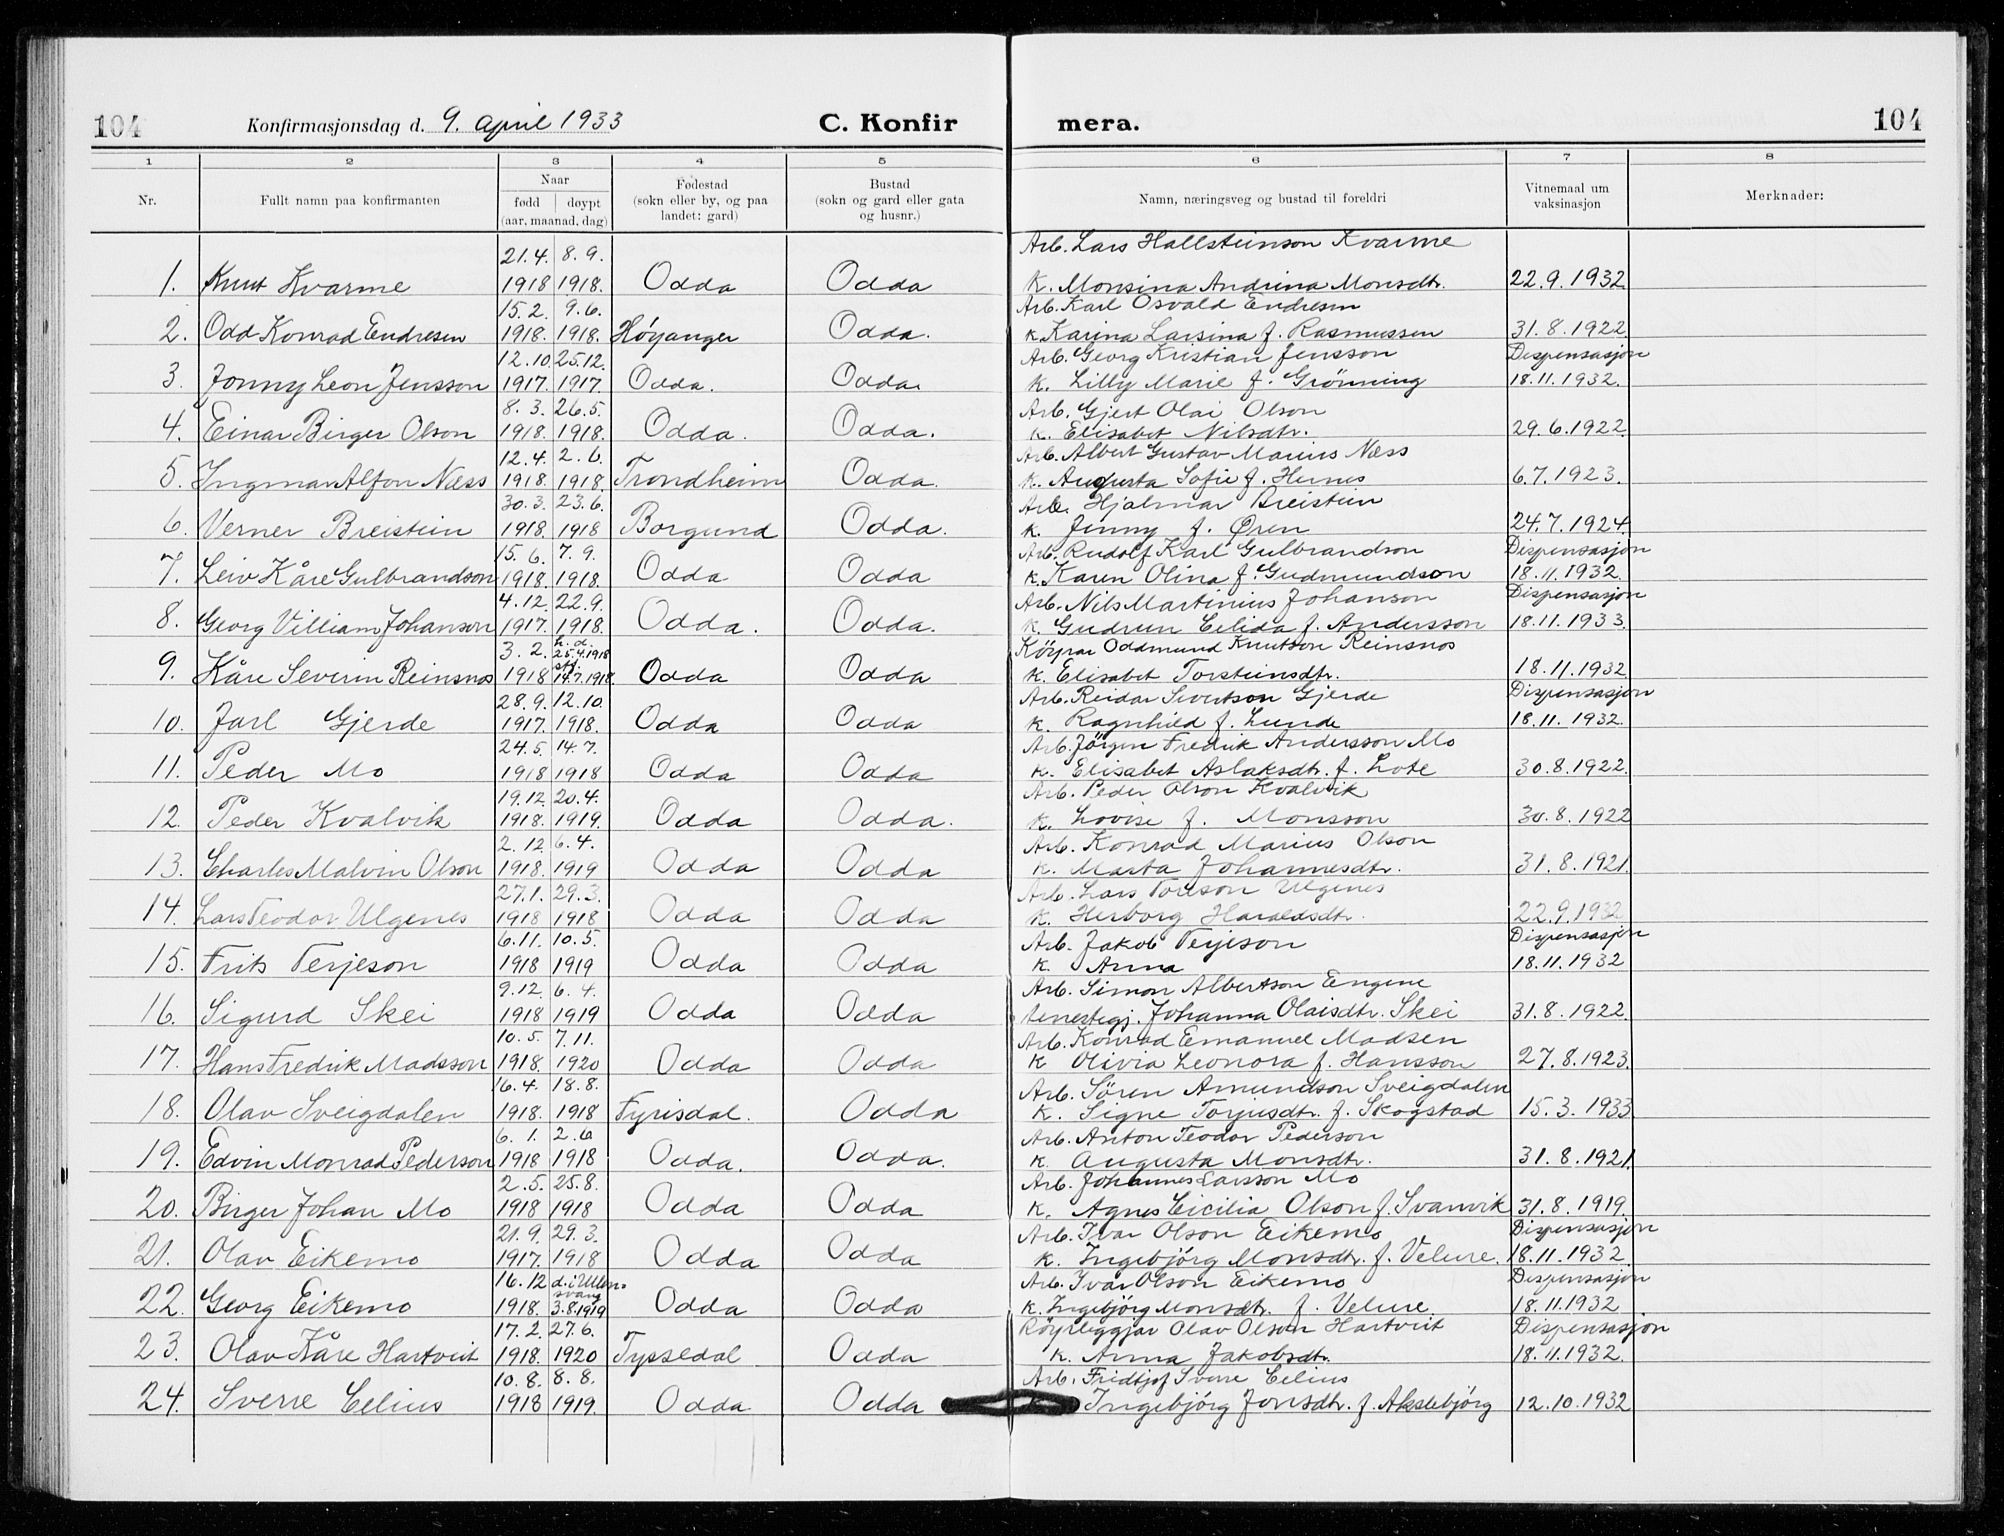 104 Konfirmasjonsdag d. 9. april 1933 C. Konfirmera. 104
1 2 3 4 5 6 7 8
Nr. Fullt namn paa konfirmanten Naar født døypt (aar, maanad, dag) Fødestad (sokn eller by, og paa landet: gard) Bustad (sokn og gard eller gata og husnr.) Namn, næringsveg og bustad til foreldri Vitnemaal um vaksinasjon Merknader:
21.4. 8.9. Arb. Lars Hallsteinson Kvarme
1. Knut Kvarme 1918 1918. Odda Odda K. Monsina Andrina Monsdtr. 22.9.1932
15.2. 9.6. Arb. Karl Osvald Endresen
2. Odd Konrad Endresen 1918. 1918. Høyanger Odda. K. Karina Larsina f. Rasmussen 31.8.1922
12.10. 25.12. Arb. Georg Kristian Jensson Dispensasjon
3. Jonny Leon Jensson 1917. 1917. Odda. Odda. K. Lilly Marie f. Grönning 18.11.1932.
8.3. 26.5. Arb. Gjert Olai Olson
4. Einar Birger Olson 1918. 1918. Odda. Odda. K. Elisabet Nilsdtr. 29.6.1922
12.4. 2.6. Arb. Albert Gustav Marius Næss
5. Ingmar Alfon Næss 1918. 1918. Trondheim Odda. K. Augusta Sofie f. Hernes 6.7.1923.
30.3. 23.6. Arb. Hjalmar Breistein
6. Verner Breistein 1918. 1918 Borgund Odda. K. Jenny f. Øren 24.7.1924.
15.6. 7.9. Arb. Rudolf Karl Gulbrandson Dispensasjon
7. Leiv Kåre Gulbrandson 1918. 1918. Odda Odda K. Karen Olina f. Gudmundson 18.11.1932.
4.12. 22.9. Arb. Nils Martinius Johanson Dispensasjon
8. Georg Villiam Johanson 1917. 1918. Odda. Odda. K. Gudrun Celida f. Andersson 18.11.1933.
3.2. h.d. 25.4.1918 Köyrar Oddmund Knutson Reinsnos
9. Kåre Severin Reinsnos 1918 stf. 14.7.1918. Odda Odda K. Elisabet Torsteinsdtr. 18.11.1932
28.9. 12.10. Arb. Reidar Sivertson Gjerde Dispensasjon
10. Jarl Gjerde 1917. 1918. Odda Odda K. Ragnhild f. Lunde 18.11.1932.
24.5. 14.7. Arb. Jörgen Fredrik Andersson Mo
11. Peder Mo 1918 1918 Odda Odda K. Elisabet Aslaksdtr. f. Lote 30.8.1922.
19.12. 20.4. Arb. Peder Olson Kvalvik
12. Peder Kvalvik 1918. 1919. Odda Odda. K. Lovise f. Monsson 30.8.1922
2.12. 6.4. Arb. Konrad Marius Olson
13. Charles Malvin Olson 1918. 1919 Odda Odda K. Marta Johannesdtr. 31.8.1921.
27.1. 29.3. Arb. Lars Torson Ulgenes
14. Lars Teodor Ulgenes 1918 1918 Odda Odda K. Herborg Haraldsdtr. 22.9.1932
6.11. 10.5. Arb. Jakob Terjeson Dispensasjon
15. Frits Terjeson 1918 1919 Odda Odda K. Anna 18.11.1932
9.12. 6.4. Arb. Simon Albertson Engene
16. Sigurd Skei 1918 1919 Odda Odda tenestegj. Johanna Olaisdtr. Skei 31.8.1922.
10.5. 7.11. Arb. Konrad Emanuel Madsen
17. Hans Fredrik Madsson 1918. 1920 Odda Odda K Olivia Leonora f. Hansson 27.8.1923.
16.4. 18.8. Arb. Sören Amundson Sveigdalen
18. Olav Sveigdalen 1918. 1918 Fyrisdal. Odda K. Signe Torjusdtr. f. Skogstad 15.3.1933
6.1. 2.6 Arb. Anton Teodor Pederson
19. Edvin Monrad Pederson 1918 1918 Odda. Odda. K. Augusta Monsdtr. 31.8.1921.
2.5. 25.8. Arb. Johannes Larsson Mo
20. Birger Johan Mo 1918 1918 Odda Odda K. Agnes Cicilia Olson f. Svanvik 31.8.1919.
21.9. 29.3. Arb. Ivar Olson Eikemo Dispensasjon
21. Olav Eikemo 1917. 1918 Odda Odda K. Ingebjörg Monsdtr. f. Velure. 18.11.1932.
16.12 d. i Ullensvang Arb. Ivar Olson Eikemo Dispensasjon
22. Georg Eikemo 1918. 3.8.1919 Odda Odda K. Ingebjörg Monsdtr. f. Velure. 18.11.1932.
17.2. 27.6. Röyrleggjar Olav Olson Hartveit Dispensasjon
23. Olav Kåre Hartveit 1918. 1920 Tyssedal Odda K. Anna Jakobsdtr. 18.11.1932.
10.8. 8.8. Arb. Fridtjof Sverre Celius
24. Sverre Celius 1918 1919. Odda Odda Ingebjörg Jonsdtr. f. Akslebjörg 12.10.1932